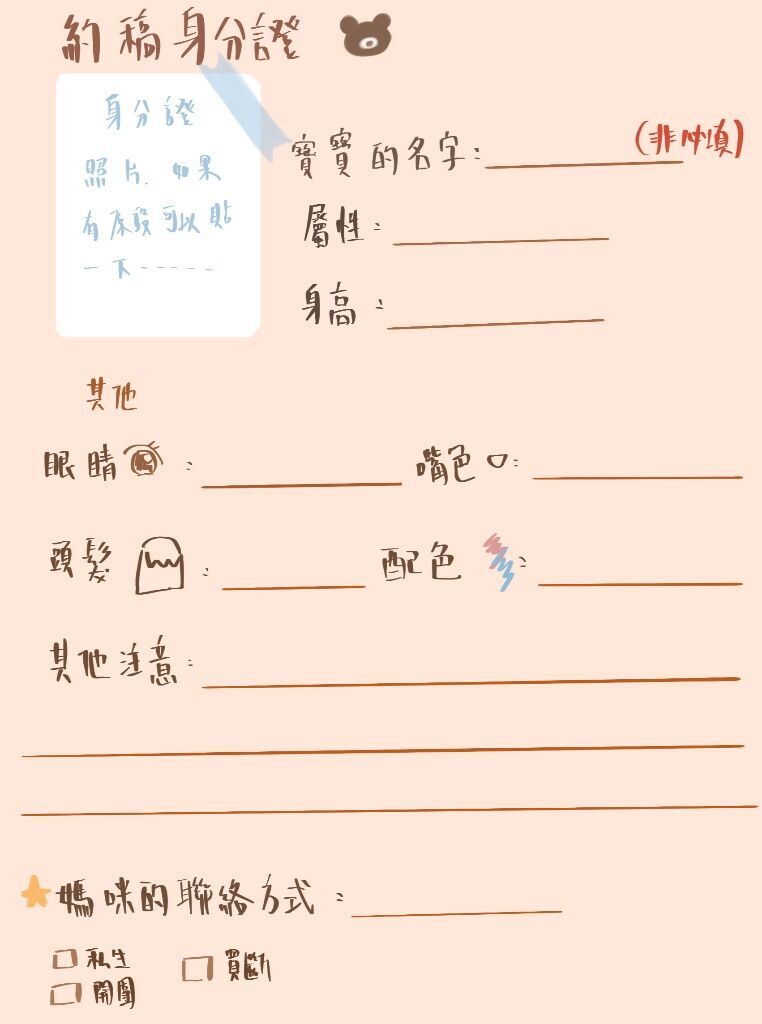 約稿身分證
身分證
照片.如果
有原設可以貼
一下------
寶寶的名字: (非必填)
屬性:
身高:
其他
眼睛: 嘴色:
頭髮: 配色:
其他注意:
媽咪的聯絡方式:
私生 買斷
開團